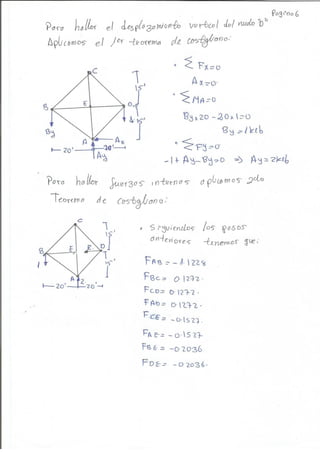 Pagina 6
Para hallar el desplazamiento vertical del nudo "D"
Aplicamos el 1er teorema de castigliano:
C
15'
B
E
D
1
15'
By
A
Ax
20'
20'
Ay
• ∑ Fx=0
Ax=0
• ∑MA=0
By×20 -20×1=0
By = 1klb
• ∑Fy=0
-1+ Ay-By=0 ⇒ Ay=2klb
Para hallar fuerzas internas aplicamos 2do
Teorema de Castigliano:
C
15'
B
E
R
D
15'
1
A
2
20'
20'
• Siguiendo los pasos
anteriores tenemos que:
FAB = -1.1228
FBC = 0.1272.
FCD = 0.1272.
FAD = 0.1272.
FCE = -0.1527.
FAE = -0.1527
FBE = -0.2036
FDE = -0.2036.